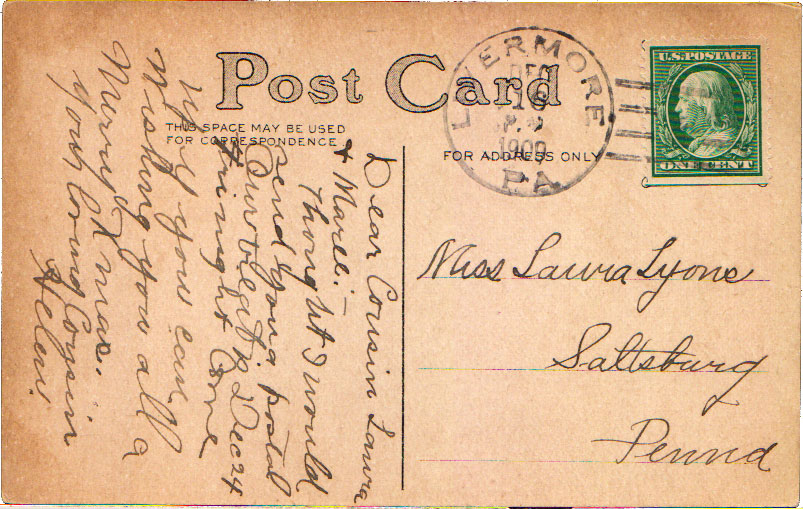 Post Card
THIS SPACE MAY BE USED
FOR CORRESPONDENCE
FOR ADDRESS ONLY
LIVERMORE
DEC
18
1909
PA
U.S. POSTAGE
ONE CENT
Miss Laura Lyons
Saltsburg
Penna
Dear Cousin Laura
&
Thought I would
send you a postal
Our treat is Dec 24
at night Come
if you can
Wishing you all a
Merry Xmas.
Your loving Cousin
Helen